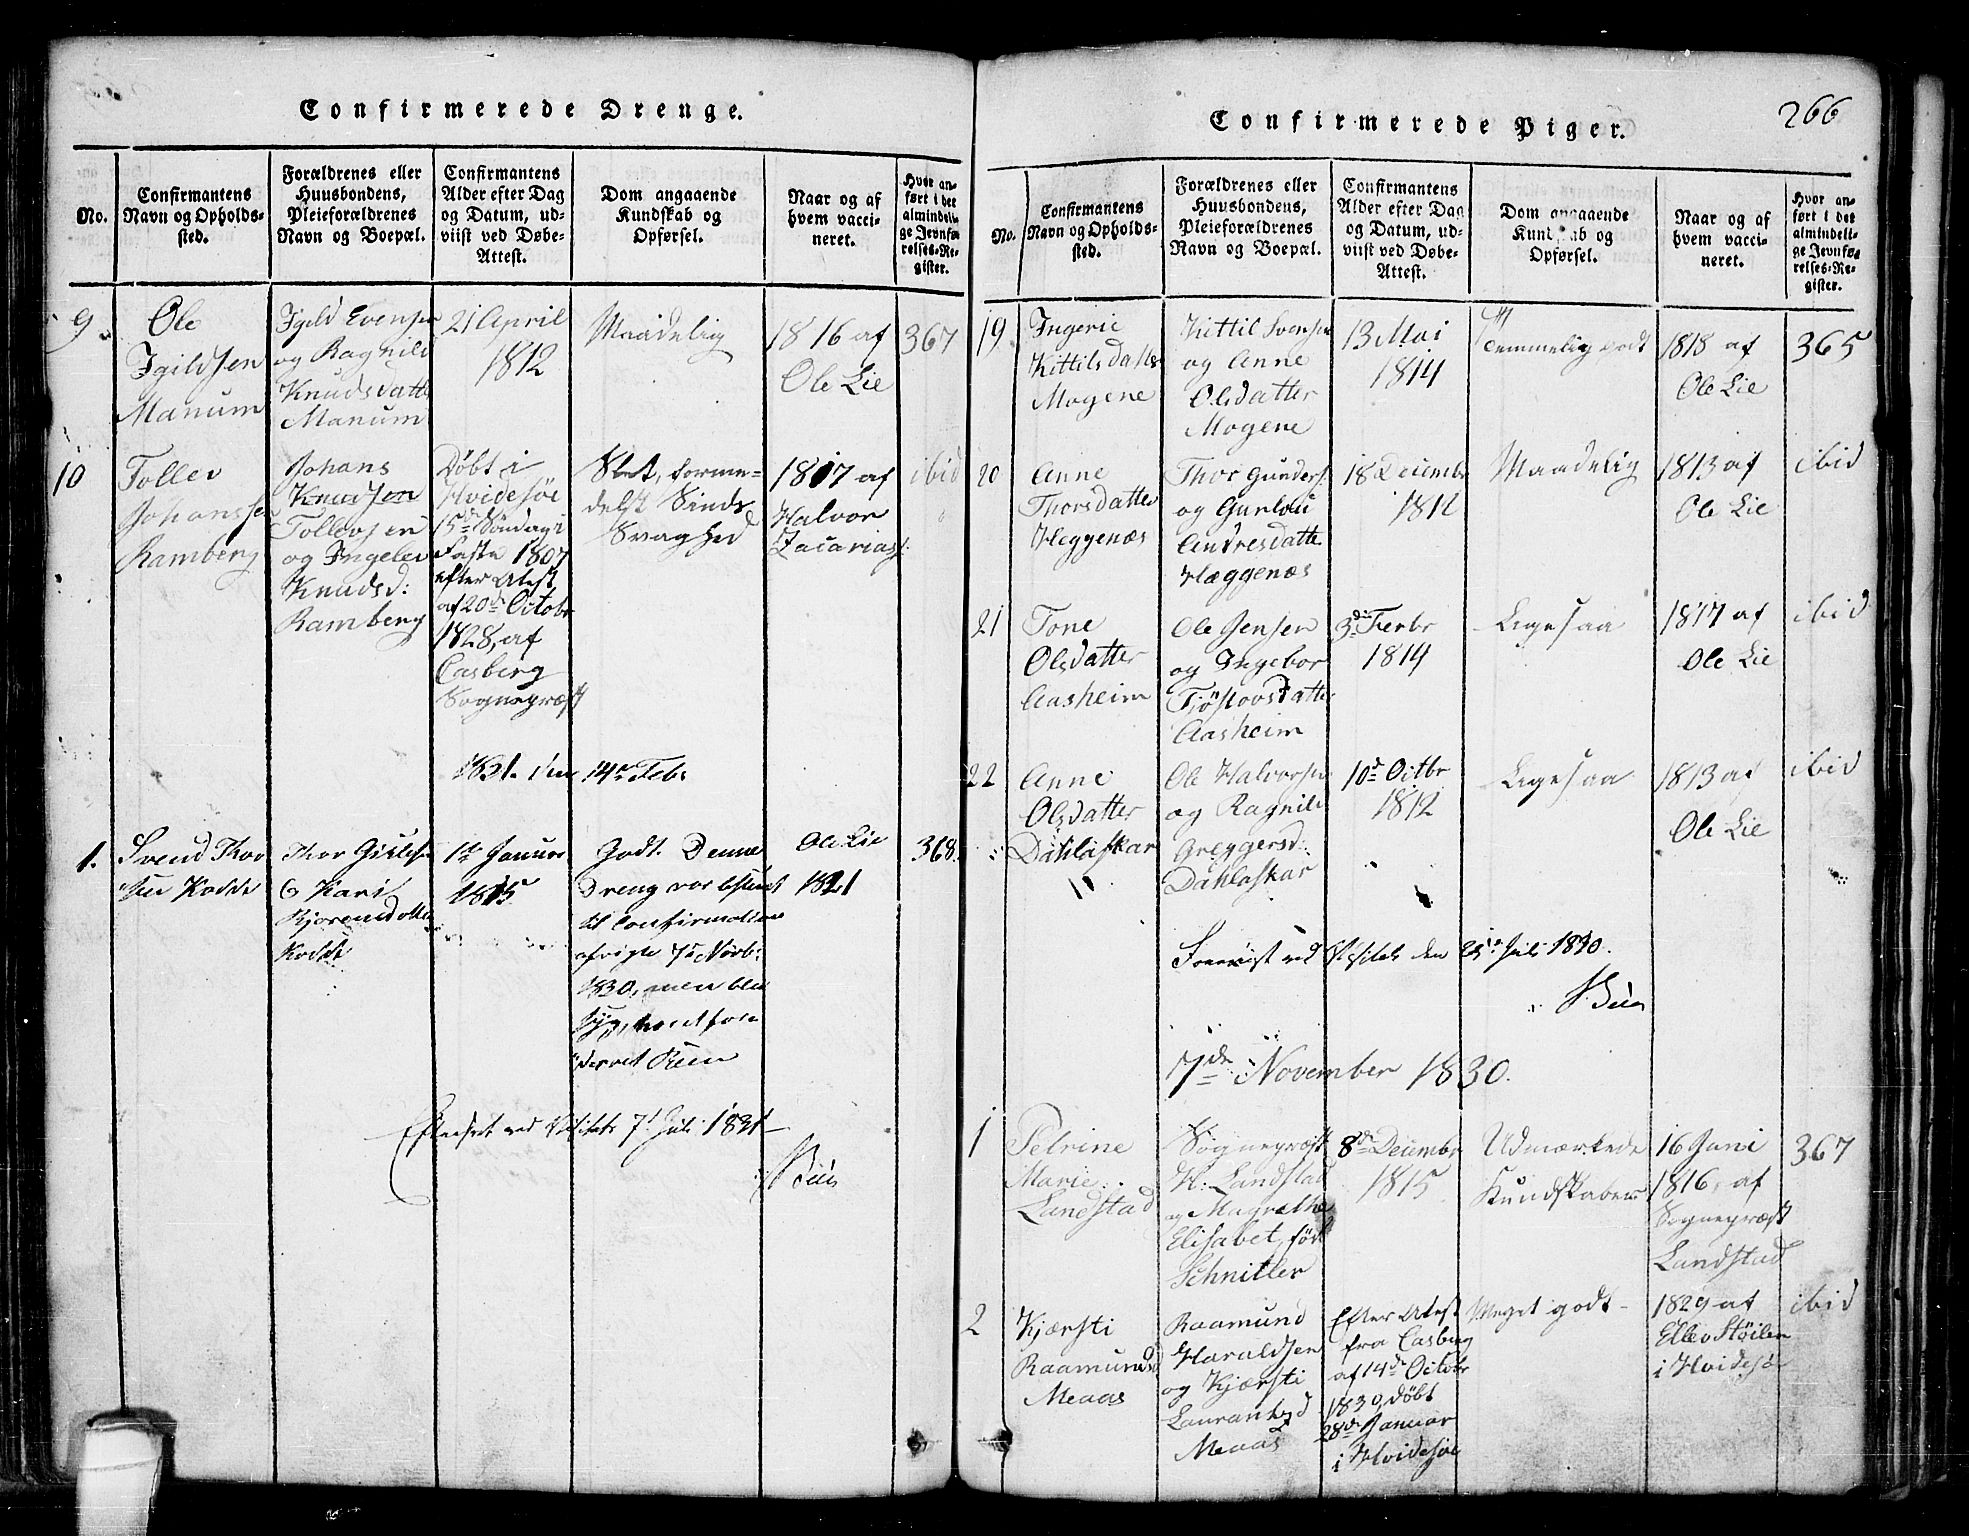 Confirmerede Drenge.
No.
Confirmantens
Navn og Opholds-
sted.
Forældrenes eller
Huusbondens,
Pleieforældrenes
Navn og Boepæl.
Confirmantens
Alder efter Dag
og Datum, ud-
viist ved Døbe-
Attest.
Dom angaaende
Kundskab og
Opførsel.
Naar og af
hvem vacci-
neret.
Hvor an-
ført i det
almindeli-
ge Jevnfø-
relses-Re-
gister.
9
Ole
Igildsen
Manum
Igild Evensen
og Ragnild
Knudsdatte
Manum
21 April
1812
Maadelig
1816 af
Ole Lie
367
10
Tollev
Johansse
Ramberg
Johans
Knudsen
Tollevsen
og Ingelev
Knudsd:
Ramberg
Døbt i
Hvidesøe
5te Søndag i
Faste 1807
efter Atest
af 20de Octobr
1828, af
Casberg
Sognepræst
Slet, forme-
delst Sinds-
Svaghed
1817 af
Halvor
Zacarias:
ibid
1831. den 14de Febr
1.
Svend Thor
sen Kodde
Thor Gislesen
& Kari
Bjørnsdotter
Kodde
1te Januar
1815
Godt. Denne
Dreng var bestemt
til Confirmation
afvigte 7de Novb:
1830, men blev
syg,
Ole Lie
1821
368.
Efterseet ved Visitats 7de Juli 1831
Confirmerede Piger.
266
No.
Confirmantens
Navn og Opholds-
sted.
Forældrenes eller
Huusbondens,
Pleieforældrenes
Navn og Boepæl.
Confirmantens
Alder efter Dag
og Datum, ud-
viist ved Døbe-
Attest.
Dom angaaende
Kundskab og
Opførsel.
Naar og af
hvem vacci-
neret.
Hvor an-
ført i det
almindeli-
ge Jevnfø-
relses-Re-
gister.
19
Ingerie
Kittilsdatter
Mogene
Kittil Svensen
og Anne
Olsdatter
Mogene
13 Mai
1814
Temmelig godt
1818 af
Ole Lie
365
20
Anne
Thorsdatter
Heggenæs
Thor Gunders:
og Gunlou
Andresdatte
Hæggenæs
18 Decembr
1812
Maadelig
1813 af
Ole Lie
ibid
21
Tone
Olsdatter
Aasheim
Ole Jensen
og Ingebor
Tjöstovsdatter
Aasheim
3die Febr
1814
Ligesaa
1817 af
Ole Lie
ibid
22
Anne
Olsdatter
Dahlaskar
Ole Halvorsen
og Ragnild
Greggersd:
Dahlaskar
10de Octbr
1812
Ligesaa
1813 af
Ole Lie
ibid
Foreviist ved Visitats den Juli 1830.
7de November 1830.
1
Petrine
Marie
Landstad
Sognepræst
H: Landstad
og Magrethe
Elisabet, født
Schnitler
8de Decembr
1815
Udmærkede
Kundskaber
16 Juni
1816, af
Sognepræst
Landstad
367
2
Kjærsti
Raamundsd
Meaas
Raamund
Haraldsen
og Kjærsti
Lauran
Meaas
Efter Atest
fra Casberg
af 14de Octobr
1830, døbt
28de Januar
i Hvidesøe
Meget godt
1829 af
Ellev Støilen
i Hvidesøe
ibid